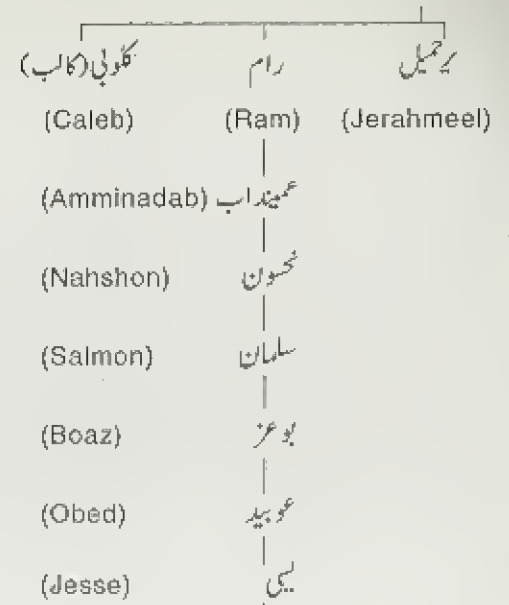 یرحمیل رام کلوبی (کالب)
(Caleb) (Ram) (Jerahmeel)
(Amminadab) عمینداب
(Nahshon) نحسون
(Salmon) سلمان
(Boaz) بوعز
(Obed) عوبید
(Jesse) یسی